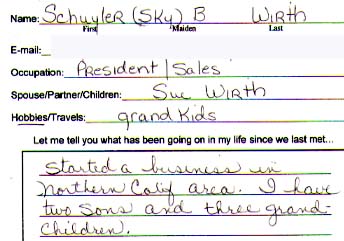 Name: Schuyler (Sky) B Wirth
First Maiden Last
E-mail:
Occupation: President / Sales
Spouse/Partner/Children: Sue Wirth
Hobbies/Travels: grand Kids
Let me tell you what has been going on in my life since we last met...
Started a business in
northern Calif area. I have
two sons and three grand-
children.